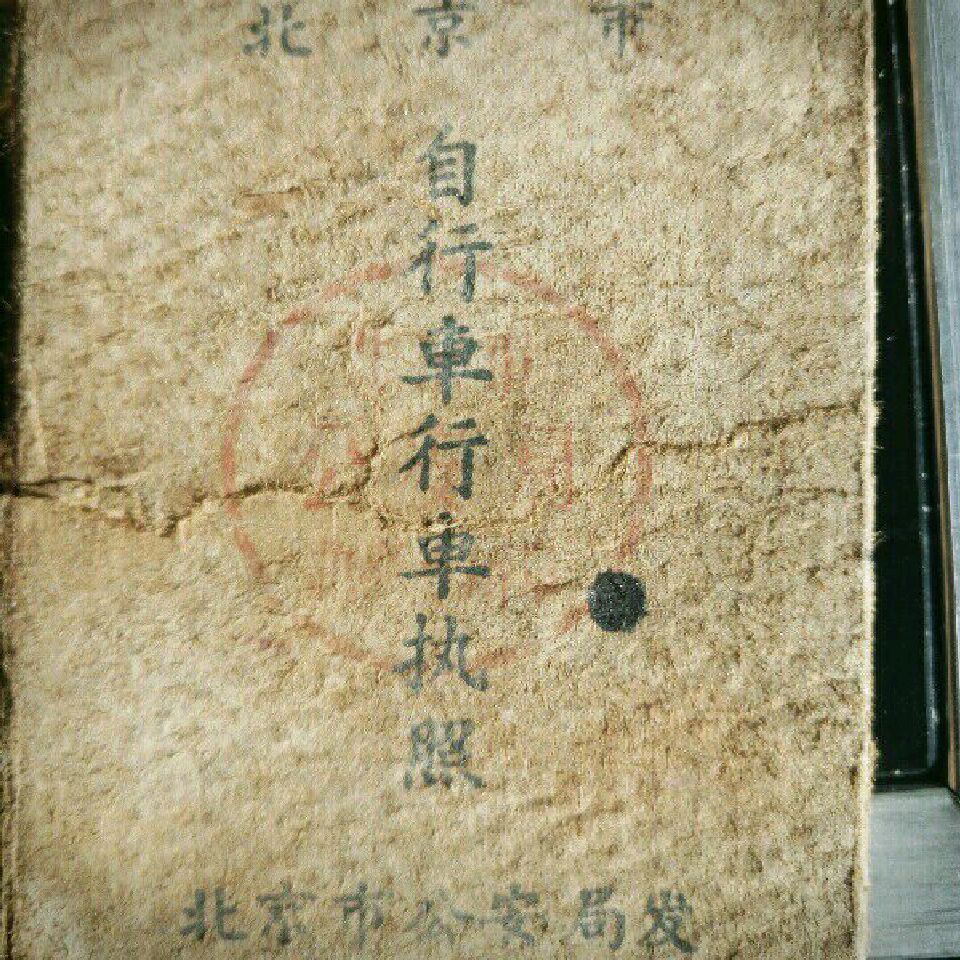 北京市
自行車行車执照
北京市公安局发